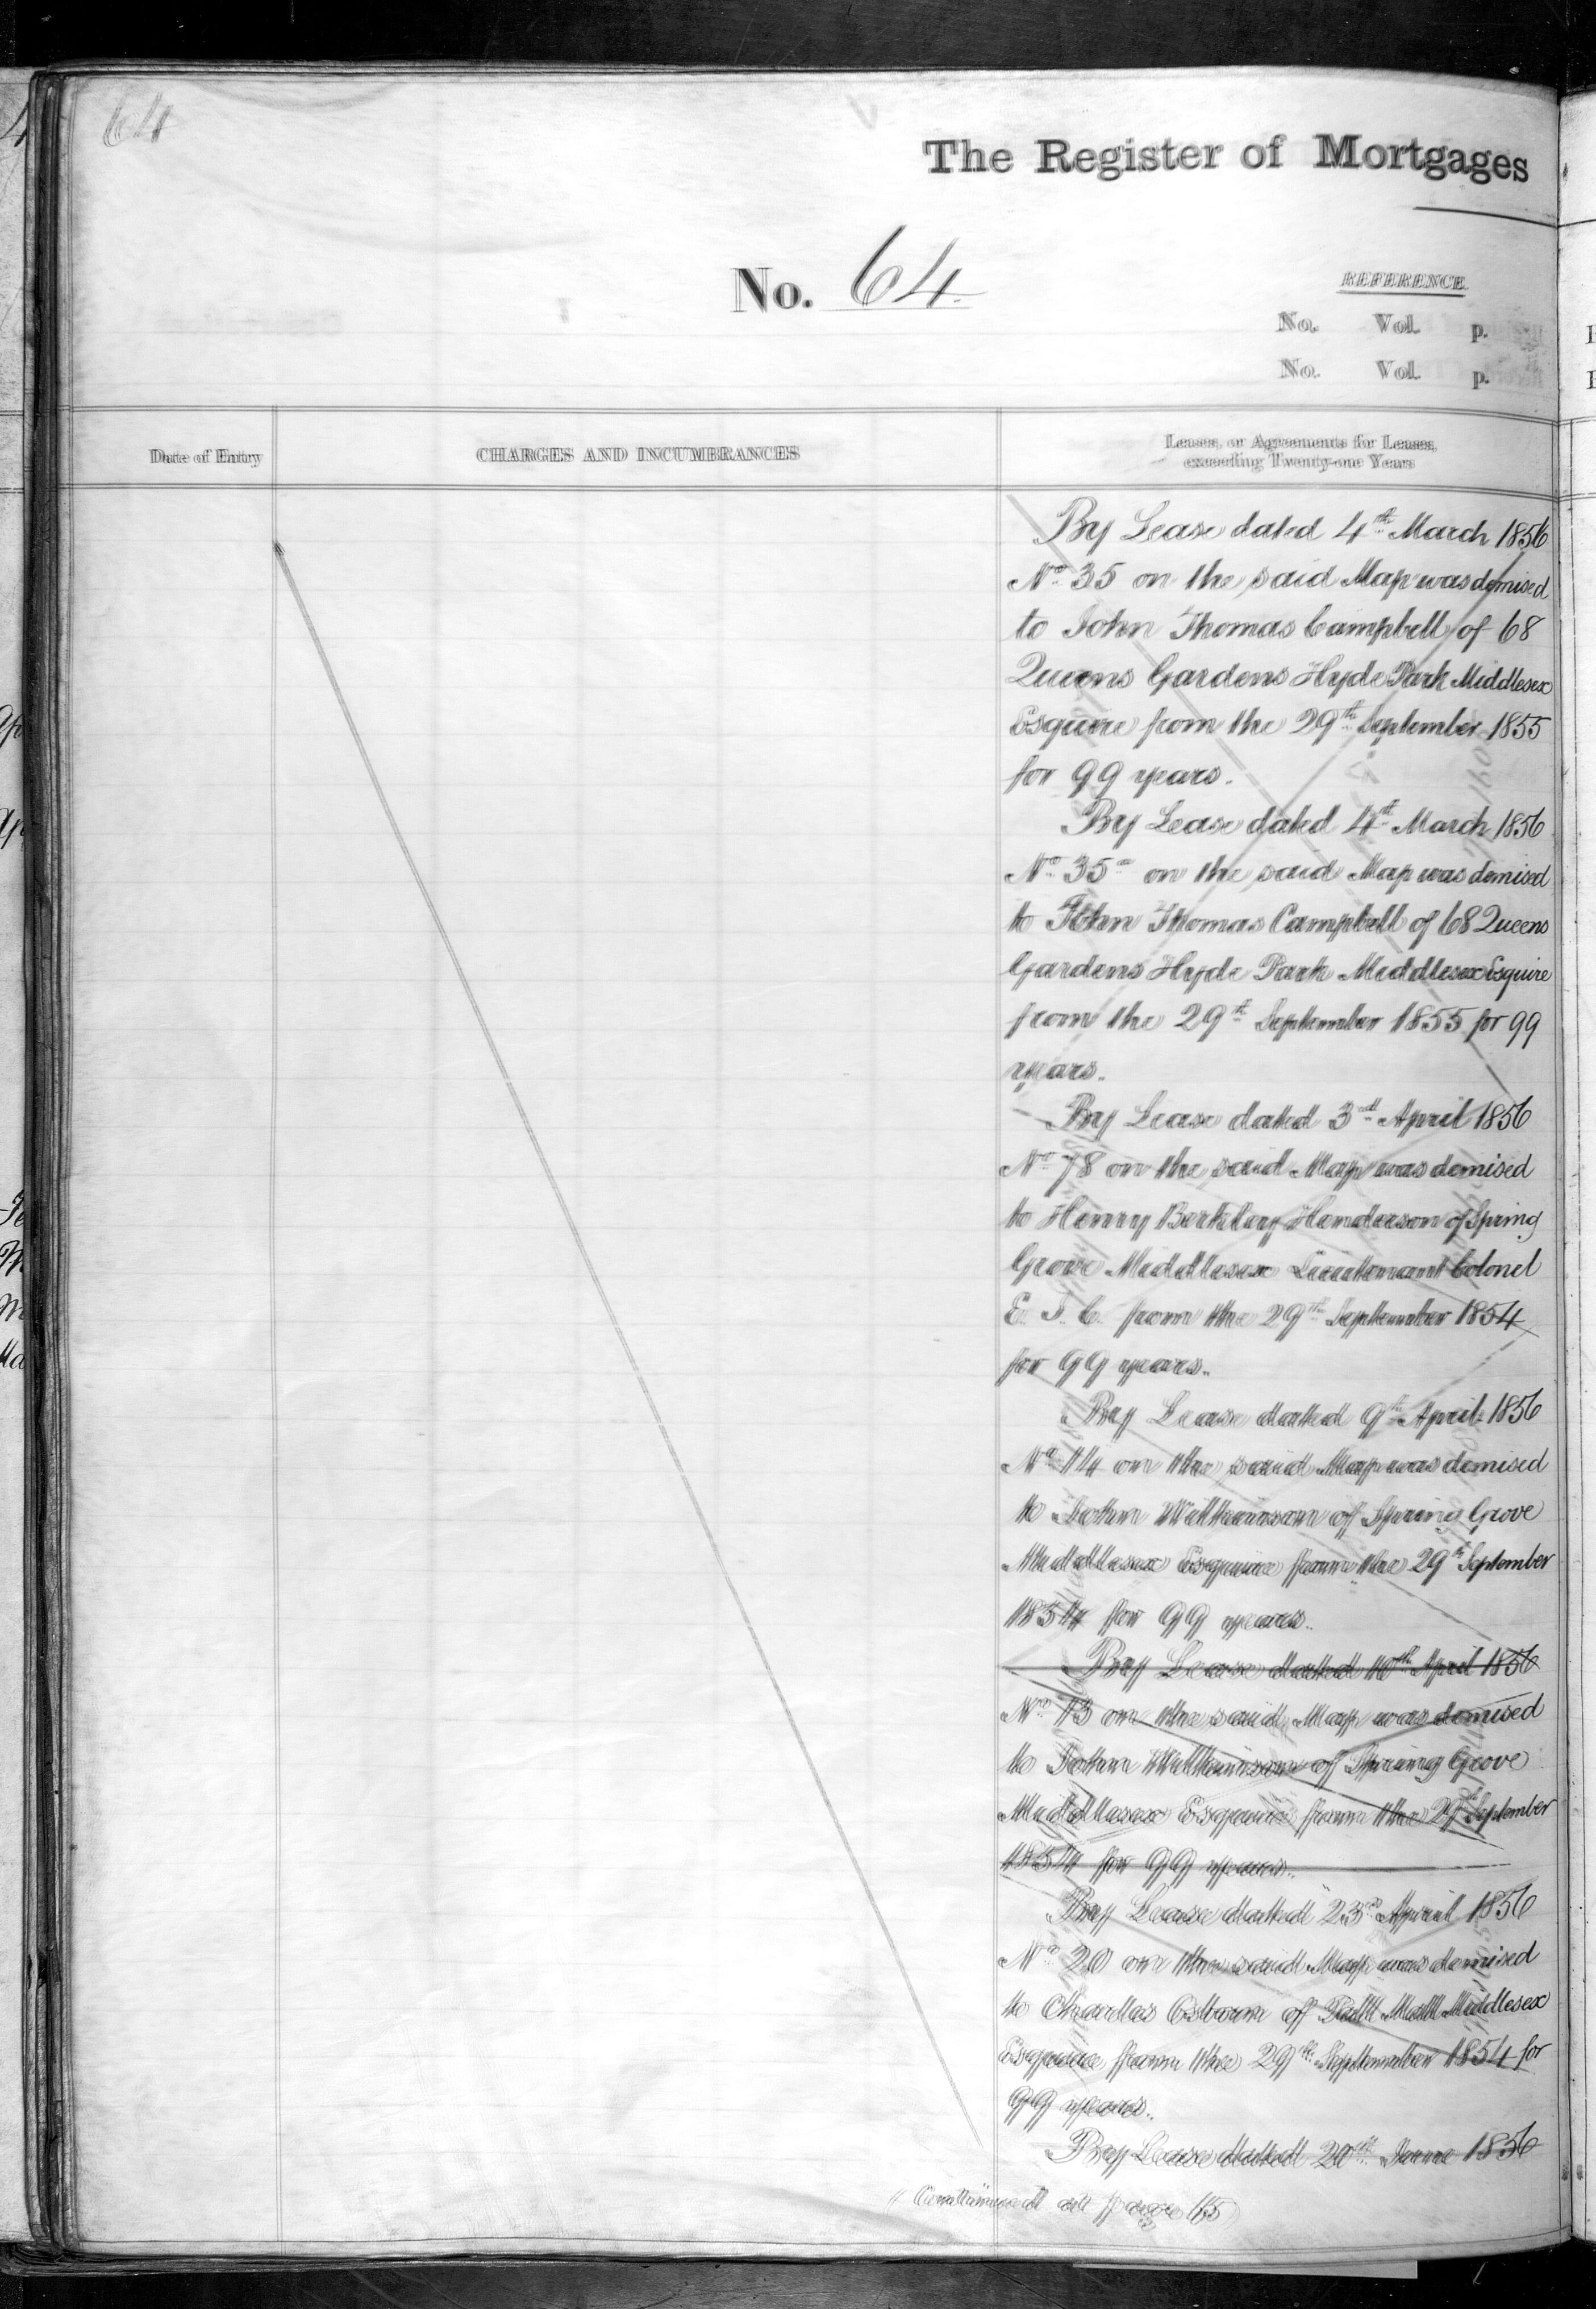 64
The Register of Mortgages
No. 64.
REFERENCE.
No. Vol. p.
No. Vol. p.
Date of Entry
CHARGES AND INCUMBRANCES
Leases, or Agreements for Leases,
exceeding Twenty-one Years
By Lease dated 4th March 1856
No 35 on the said Map was demised
to John Thomas Campbell of 68
Queens Gardens Hyde Park Middlesex
Esquire from the 29th September 1855
for 99 years.
By Lease dated 4th March 1856
No 35a on the said Map was demised
to John Thomas Campbell of 68 Queens
Gardens Hyde Park Middlesex Esquire
from the 29th September 1855 for 99
years.
By Lease dated 3rd April 1856
No 78 on the said Map was demised
to Henry Barkley Henderson of Spring
Grove Middlesex Lieutenant Colonel
E. I. C. from the 29th September 1854
for 99 years.
By Lease dated 9th April 1856
No 14 on the said Map was demised
to John of Spring Grove
Middlesex Esquire from the 29th September
1854 for 99 years.
By Lease dated 10th April 1856
No 13 on the said Map was demised
to John of Spring Grove
Middlesex Esquire from the 29th September
1854 for 99 years.
By Lease dated 23rd April 1856
No 20 on the said Map was demised
to Charles of Pall Mall Middlesex
Esquire from the 29th September 1854 for
99 years.
By Lease dated June 1856
(Continued at page 65)